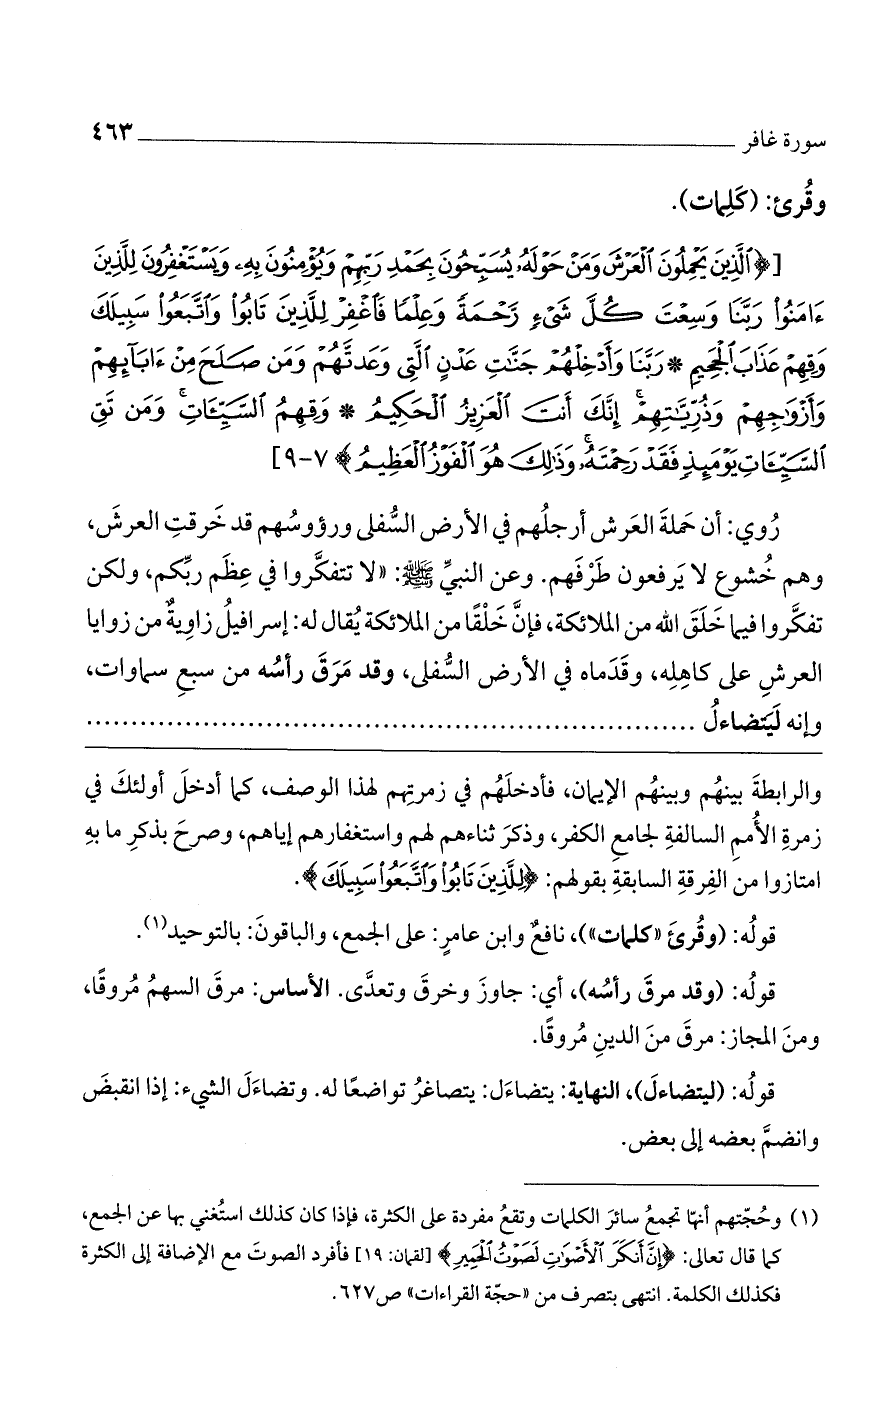 سورة غافر ٤٦٣
وقُرئ: (كَلِمات).
[﴿ٱلَّذِينَ يَحْمِلُونَ ٱلْعَرْشَ وَمَنْ حَوْلَهُۥ يُسَبِّحُونَ بِحَمْدِ رَبِّهِمْ وَيُؤْمِنُونَ بِهِۦ وَيَسْتَغْفِرُونَ لِلَّذِينَ
ءَامَنُوا۟ رَبَّنَا وَسِعْتَ كُلَّ شَىْءٍ رَّحْمَةً وَعِلْمًا فَٱغْفِرْ لِلَّذِينَ تَابُوا۟ وَٱتَّبَعُوا۟ سَبِيلَكَ
وَقِهِمْ عَذَابَ ٱلْجَحِيمِ * رَبَّنَا وَأَدْخِلْهُمْ جَنَّٰتِ عَدْنٍ ٱلَّتِى وَعَدتَّهُمْ وَمَن صَلَحَ مِنْ ءَابَآئِهِمْ
وَأَزْوَٰجِهِمْ وَذُرِّيَّٰتِهِمْ ۚ إِنَّكَ أَنتَ ٱلْعَزِيزُ ٱلْحَكِيمُ * وَقِهِمُ ٱلسَّيِّـَٔاتِ ۚ وَمَن تَقِ
ٱلسَّيِّـَٔاتِ يَوْمَئِذٍ فَقَدْ رَحِمْتَهُۥ ۚ وَذَٰلِكَ هُوَ ٱلْفَوْزُ ٱلْعَظِيمُ﴾ ٧-٩]
رُوي: أن حَملةَ العَرش أرجلُهم في الأرض السُّفلى ورؤوسُهم قد خَرقتِ العرشَ،
وهم خُشوع لا يَرفعون طَرْفَهم. وعن النبيِّ ﷺ: «لا تتفكَّروا في عِظَم ربِّكم، ولكن
تفكَّروا فيما خَلَقَ الله من الملائكة، فإنَّ خَلْقًا من الملائكة يُقال له: إسرافيلُ زاوِيةٌ من زوايا
العرشِ على كاهِلِه، وقَدَماه في الأرض السُّفلى، وقد مَرَقَ رأسُه من سبعِ سماوات،
وإنه لَيَتضاءلُ ................................................................
والرابطةَ بينهُم وبينهُم الإيمان، فأدخلَهُم في زمرتِهم لهذا الوصف، كما أدخلَ أولئكَ في
زمرةِ الأُممِ السالفةِ لجامعِ الكفر، وذكرَ ثناءهم لهم واستغفارهم إياهم، وصرحَ بذكرِ ما بهِ
امتازوا من الفِرقةِ السابقةِ بقولهم: ﴿لِلَّذِينَ تَابُوا۟ وَٱتَّبَعُوا۟ سَبِيلَكَ﴾.
قولُه: (وقُرئَ «كلمات»)، نافعٌ وابن عامرٍ: على الجمع، والباقونَ: بالتوحيد(١).
قولُه: (وقد مرقَ رأسُه)، أي: جاوزَ وخرقَ وتعدَّى. الأساس: مرقَ السهمُ مُروقًا،
ومنَ المجاز: مرقَ منَ الدينِ مُروقًا.
قولُه: (ليتضاءلَ)، النهاية: يتضاءَل: يتصاغرُ تواضعًا له. وتضاءَلَ الشيء: إذا انقبضَ
وانضمَّ بعضه إلى بعض.
(١) وحُجّتهم أنهّا تجمعُ سائرَ الكلمات وتقعُ مفردة على الكثرة، فإذا كان كذلك استُغني بها عن الجمع،
كما قال تعالى: ﴿إِنَّ أَنكَرَ ٱلْأَصْوَٰتِ لَصَوْتُ ٱلْحَمِيرِ﴾ [لقمان: ١٩] فأفرد الصوتَ مع الإضافة إلى الكثرة
فكذلك الكلمة. انتهى بتصرف من «حجّة القراءات» ص٦٢٧.